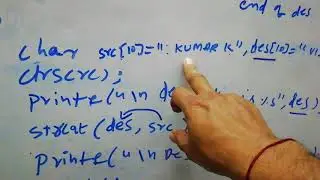 end of des
char src[10]=": KUMAR K", des[10]="VI
clrscr();
printf("\n de is %s", des)
strcat(des, src
printf("\n De